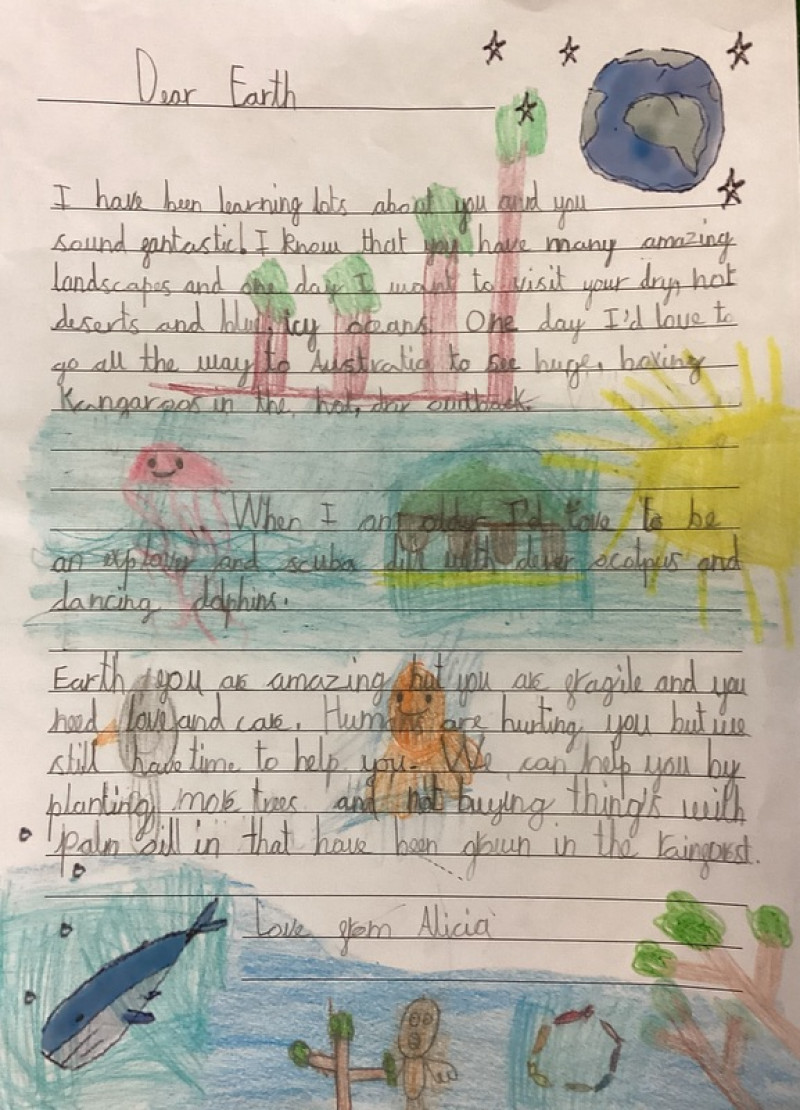 Dear Earth
I have been learning lots about you and you
sound fantastic! I know that you have many amazing
landscapes and one day I want to visit your dry, hot
deserts and blue, icy oceans. One day I'd love to
go all the way to Australia to see huge, boxing
Kangaroos in the, hot, dry outback.
When I am older I'd love to be
an explorer and scuba with clever ocotpus and
dancing dolphins.
Earth you are amazing but you are fragile and you
need love and care. Humans are hurting you but we
still have time to help you. We can help you by
planting more trees and not buying thing's with
palm oill in that have been grown in the rainforest.
Love from Alicia